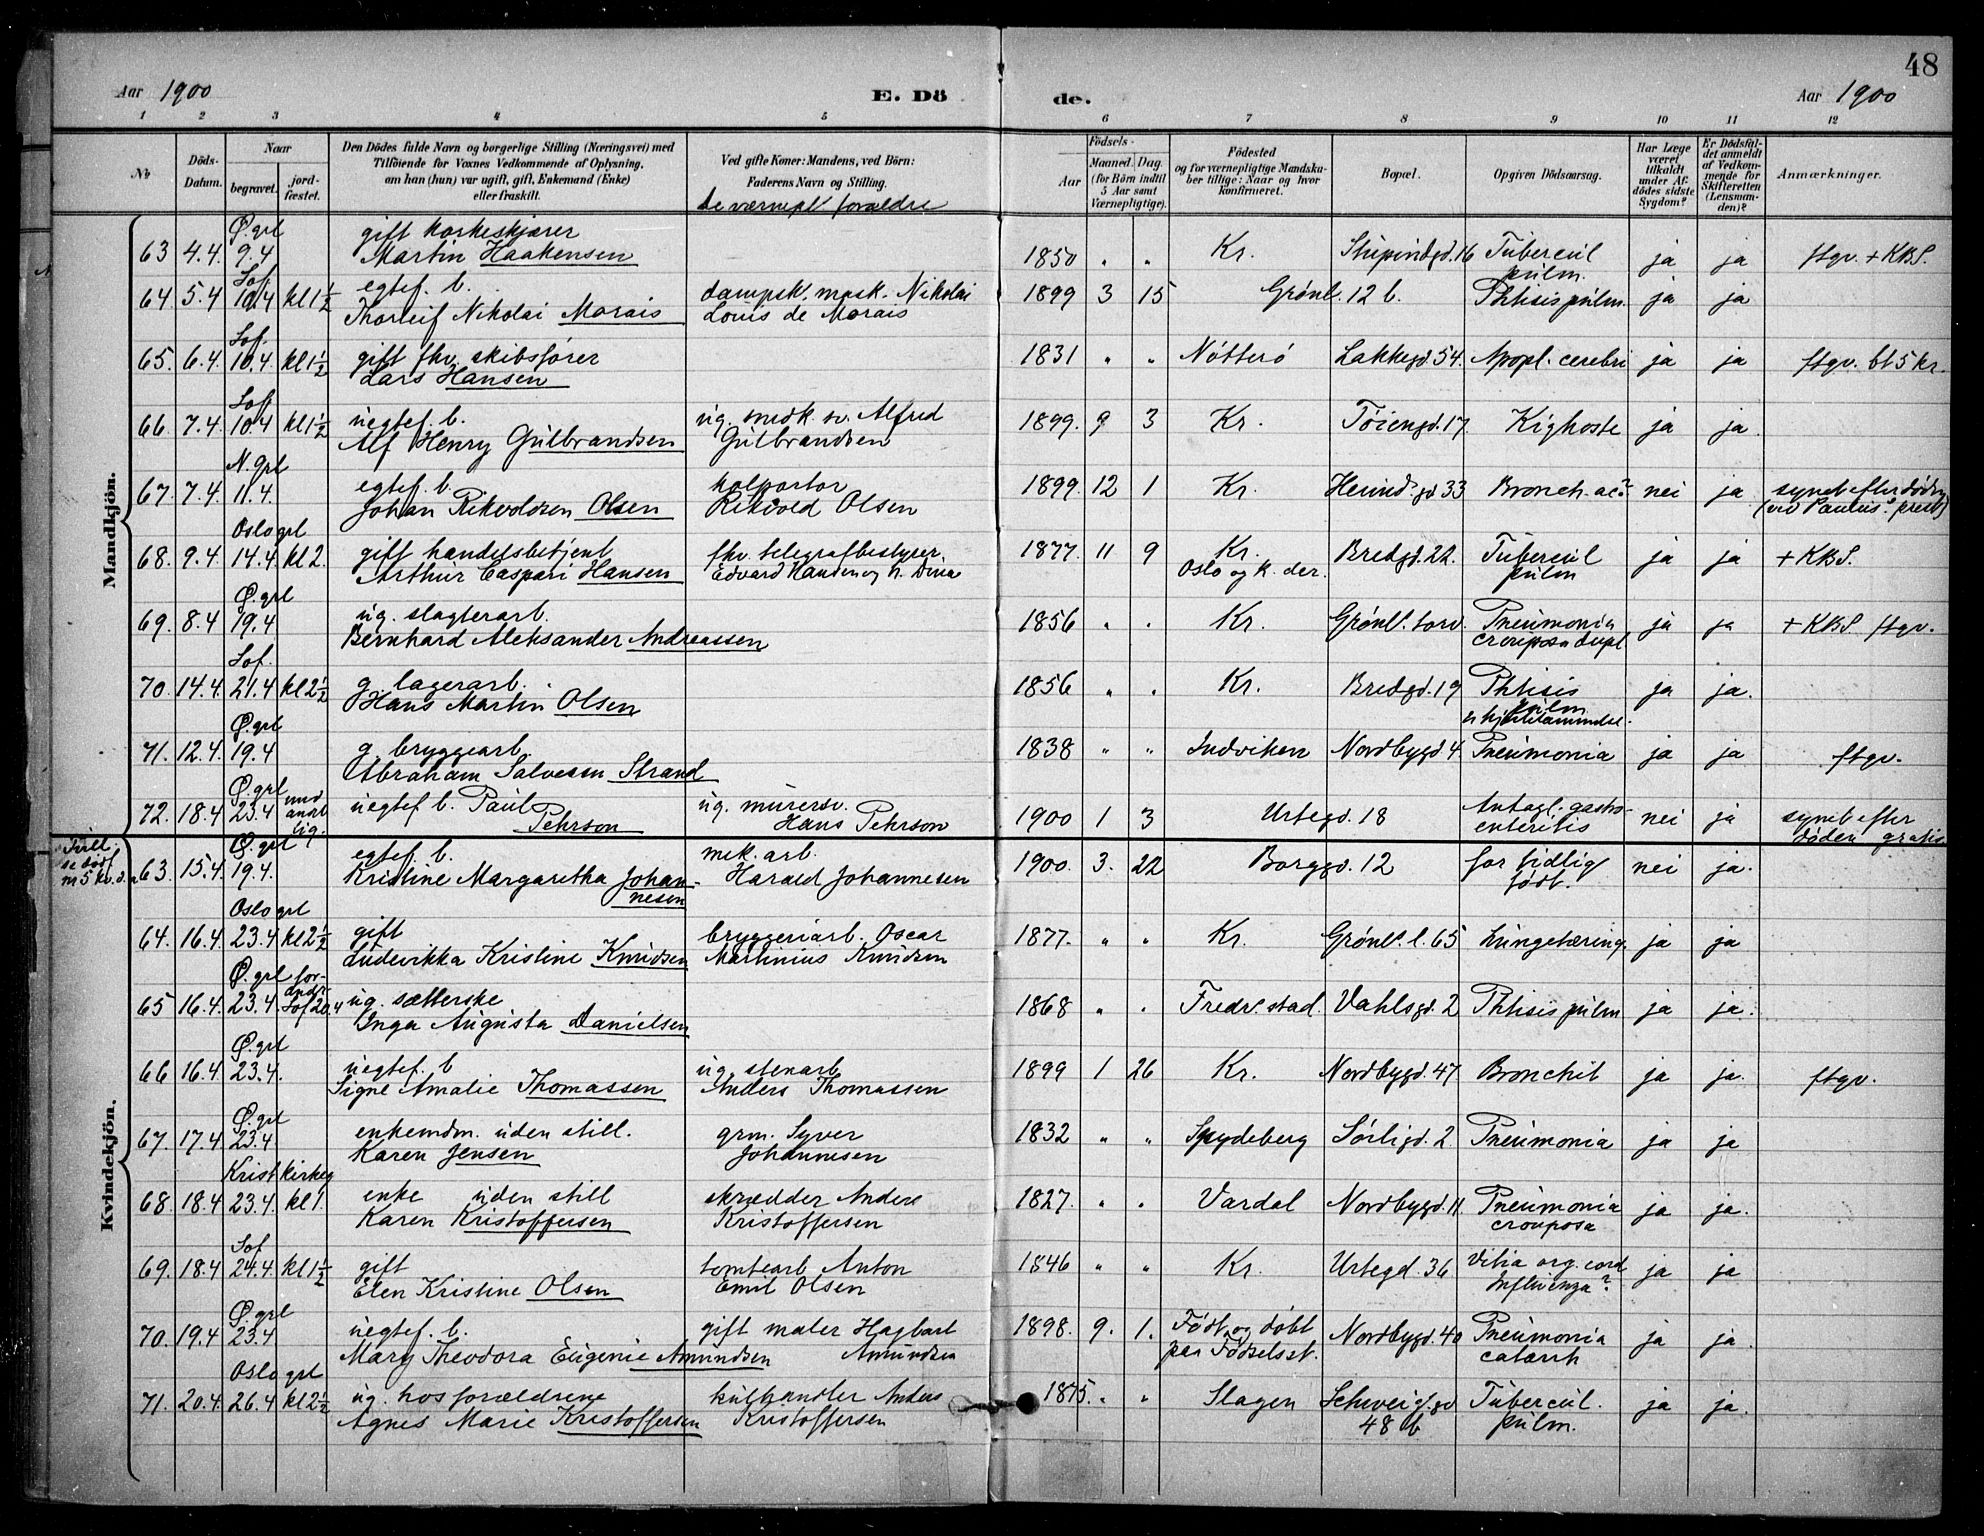 48
Aar 1900 E. Dö de. Aar 1900
1 2 3 4 5 6 7 8 9 10 11 12
No
Döds-Datum.
Naar
begravet.
jordfæstet.
Den Dödes fulde Navn og borgerlige Stilling (Næringsvei) med
Tilföiende for Voxnes Vedkommende af Oplysning,
om han (hun) var ugift, gift, Enkemand (Enke)
eller fraskilt.
Ved gifte Koner: Mandens, ved Börn:
Faderens Navn og Stilling.
de værnepl. forældre
Födsels-
Aar
Maaned. Dag.
(for Börn indtil
5 Aar samt
Værnepligtige).
Födested
og for værnepligtige Mandskaber tillige: Naar og hvor
konfirmeret.
Bopæl.
Opgiven Dödsaarsag.
Har Læge
været
tilkaldt
under Afdödes sidste
Sygdom?
Er Dödsfaldet anmeldt
af Vedkommende for
Skifteretten
(Lensmanden)?
Anmærkninger.
Mandkjön.
Ø. grl gift korkeskjærer
63 4.4. 9.4 Martin Haakensen 1850 " " Kr. Stupindgd. 16 Tubercul pulm. ja ja ftgv. + KBS.
Sof. egtef. b. dampsk. mask. Nikolai
64. 5.4 10.4 kl 1½ Thorleif Nikolai Morais Louis de Morais 1899 3 15 Grønl. 12 b. Phtisis pulm. ja ja
Sof. gift fhv. skibsfører
65. 6.4. 10.4. kl 1½ Lars Hansen 1831 " " Nøtterø Lakkegd. 54. Apopl. cerebri ja ja ftgv. bt 5 kr.
Sof. uegtef. b. ug. smdk. sv. Alfred
66. 7.4. 10.4 kl 1½ Alf Henry Gulbrandsen Gulbrandsen 1899. 9 3 Kr. Tøiengd. 17. Kighoste ja ja
N. grl egtef. b. kolportør
67. 7.4. 11.4. Johan Rikvoldsen Olsen Rikvold Olsen 1899. 12 1 Kr. Heimd. gd 33 Bronch. ac? nei ja synet efter døden
Oslo grl gift handelsbetjent fhv. telegrafbestyrer
68. 9.4. 14.4. kl 2. Arthur Caspari Hansen Edvard Hansen og h. Dina 1877. 11 9 Kr. Oslo og k. der. Bredgd. 22. Tubercul pulm ja ja + KBS.
Ø. grl ug. slagterarb.
69. 8.4 19.4 Bernhard Aleksander Andreassen 1856 " " Kr. Grønl. torv. Pneumonia crouposa dupl ja ja + KBS. ftgv.
Sof. g. lagerarb.
70. 14.4. 21.4 kl 2½ Hans Martin Olsen 1856 " " Kr. Bredgd. 19 Phtisis pulm ja ja.
Ø. grl g. bryggearb.
71. 12.4. 19.4 Abraham Salvesen Strand 1838 " " Indviken Nordbygd 4. Pneumonia ja ja ftgv.
Ø. grl uegtef b. Paul ug. murersv.
72. 18.4 23.4 Pehrson Hans Pehrson 1900 1 3 Urtegd. 18 Antagl. gastroenteritis nei ja synet efter døden gratis
Kvindekjön.
Ø. grl egtef. b. mek. arb.
63. 15.4. 19.4. Kristine Margaretha Johannesen Harald Johannesen 1900. 3. 22 Borggd. 12 for tidlig født. nei ja.
Oslo grl gift bryggeriarb. Oscar
64. 16.4. 23.4 kl 2½ Ludevikka Kristine Knudsen Martinius Knudsen 1877. " " Kr. Grønl. l. 65 Lungetæring ja ja
Ø. grl ug. sætterske
65 16.4. 23.4. Sof 20.4 Inga Augusta Danielsen 1868 " " Fredr. stad. Vahlsgd. 2 Phtisis pulm ja ja.
Ø. grl uegtef. b ug. stenarb
66 16.4. 23.4. Signe Amalie Thomassen Anders Thomassen 1899 1 26 Kr. Nordbygd. 47 Bronchit ja ja. ftgv.
Ø. grl enkemdm. uden still. grm. Syver
67. 17.4 23.4 Karen Jensen Johannesen 1832 " " Spydeberg Sørligd. 2 Pneumonia ja ja
Krist kirkeg enke uden still skrædder Anders
68. 18.4 23.4. kl 1. Karen Kristoffersen Kristoffersen 1827. " " Vardal Nordbygd. 11 Pneumonia crouposa ja ja.
Sof gift tomtearb Anton
69. 18.4 24.4. kl 1½ Elen Kristine Olsen Emil Olsen 1846 " " Kr. Urtegd. 36 Vitia org. cord Influenza? ja ja
Ø. grl uegtef. b. gift maler Hagbart
70. 19.4 23.4 Mary Theodora Eugenie Amundsen Amundsen 1898. 9. 1. Født og døbt paa Fødselsst. Nordbygd. 40 Pneumonia catarrh ja ja.
Oslo grl ug. hos forældrene kulhandler Anders
71. 20.4. 26.4 kl 2½ Agnes Marie Kristoffersen Kristoffersen 1875. " " Slagen Schweig. gd 48 b Tubercul. pulm. ja ja.